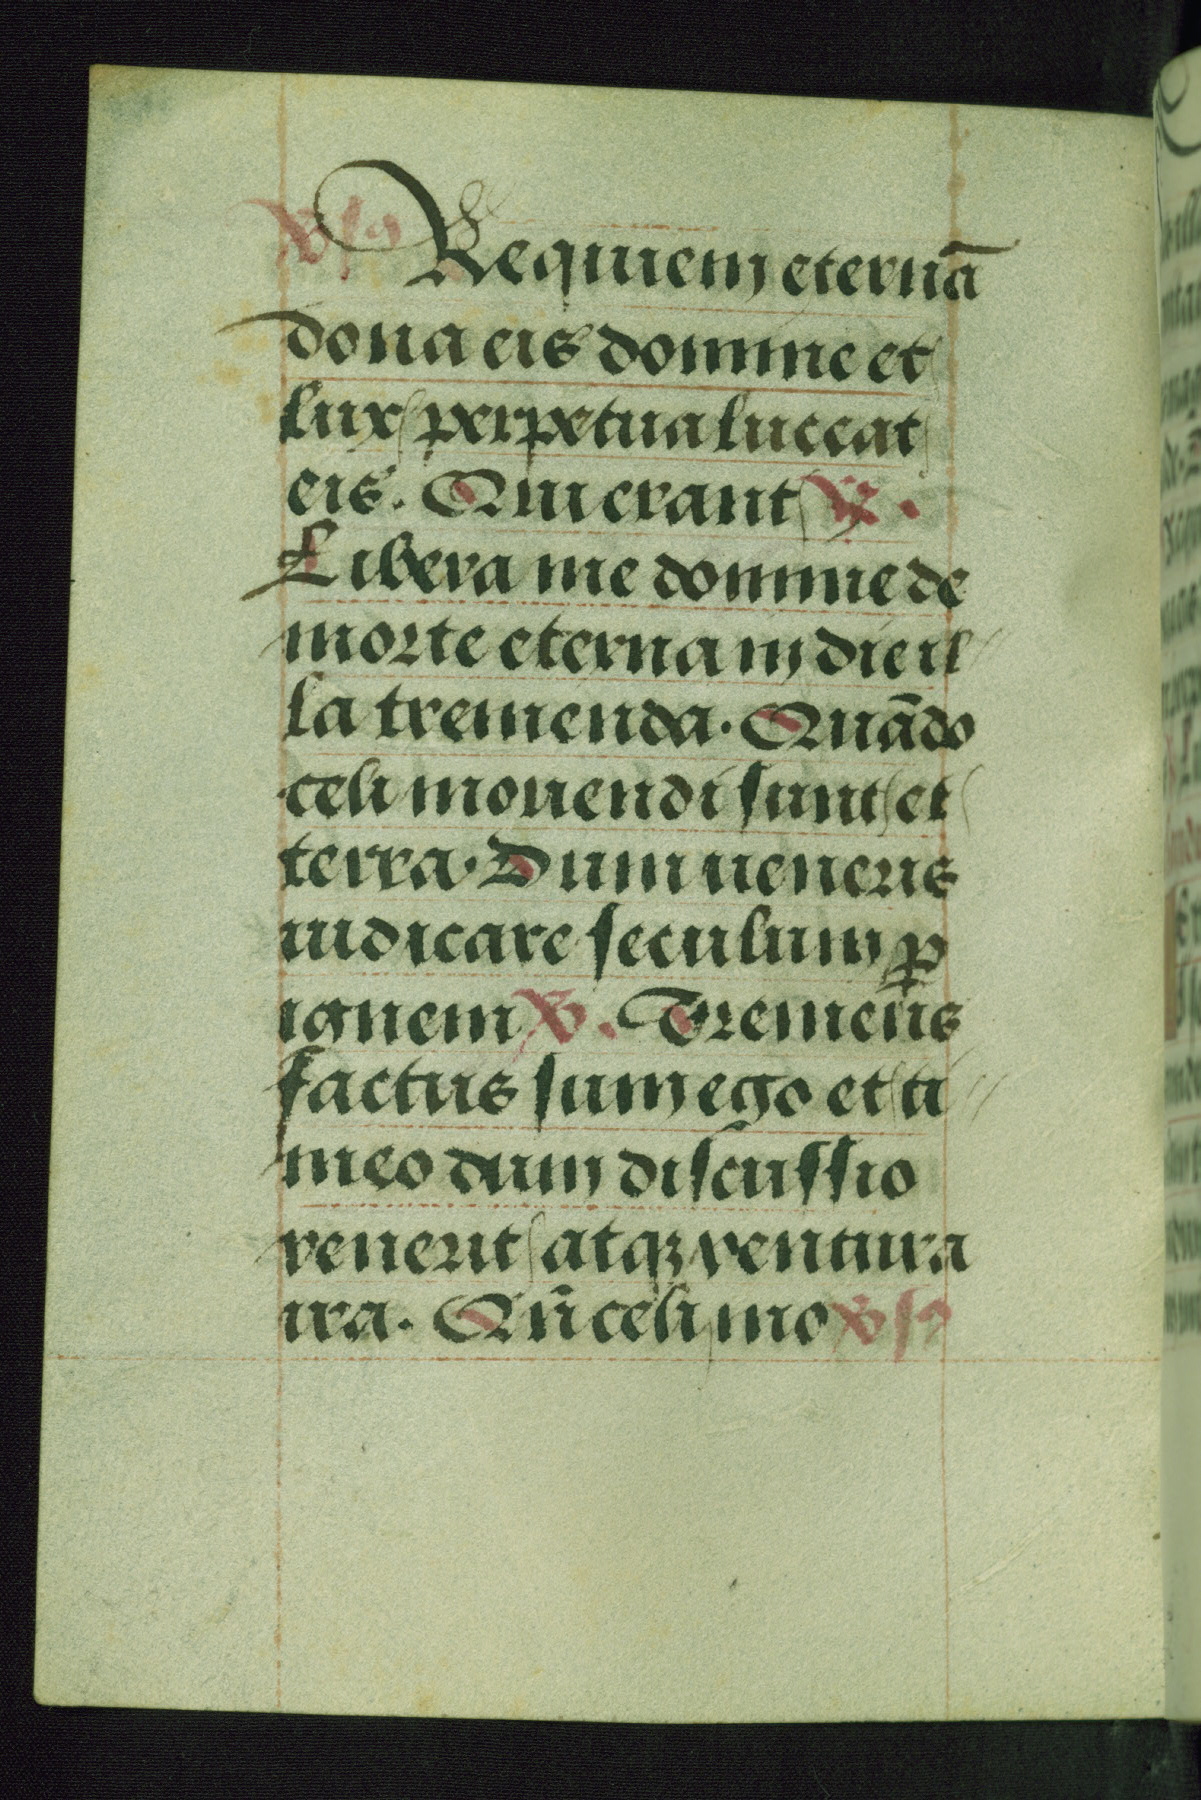 ℣sꝰ Requiem eternā
dona eis domine et
lux perpetua luceat
eis. Qui erant ℟.
Libera me domine de
morte eterna in die il
la tremenda. Quādo
celi mouendi sunt et
terra. Dum ueneris
iudicare seculum ꝑ
ignem ℣. Tremens
factus sum ego et ti
meo dum discussio
venerit atqꝫ ventura
ira. Qn̄ celi mo ℣sꝰ